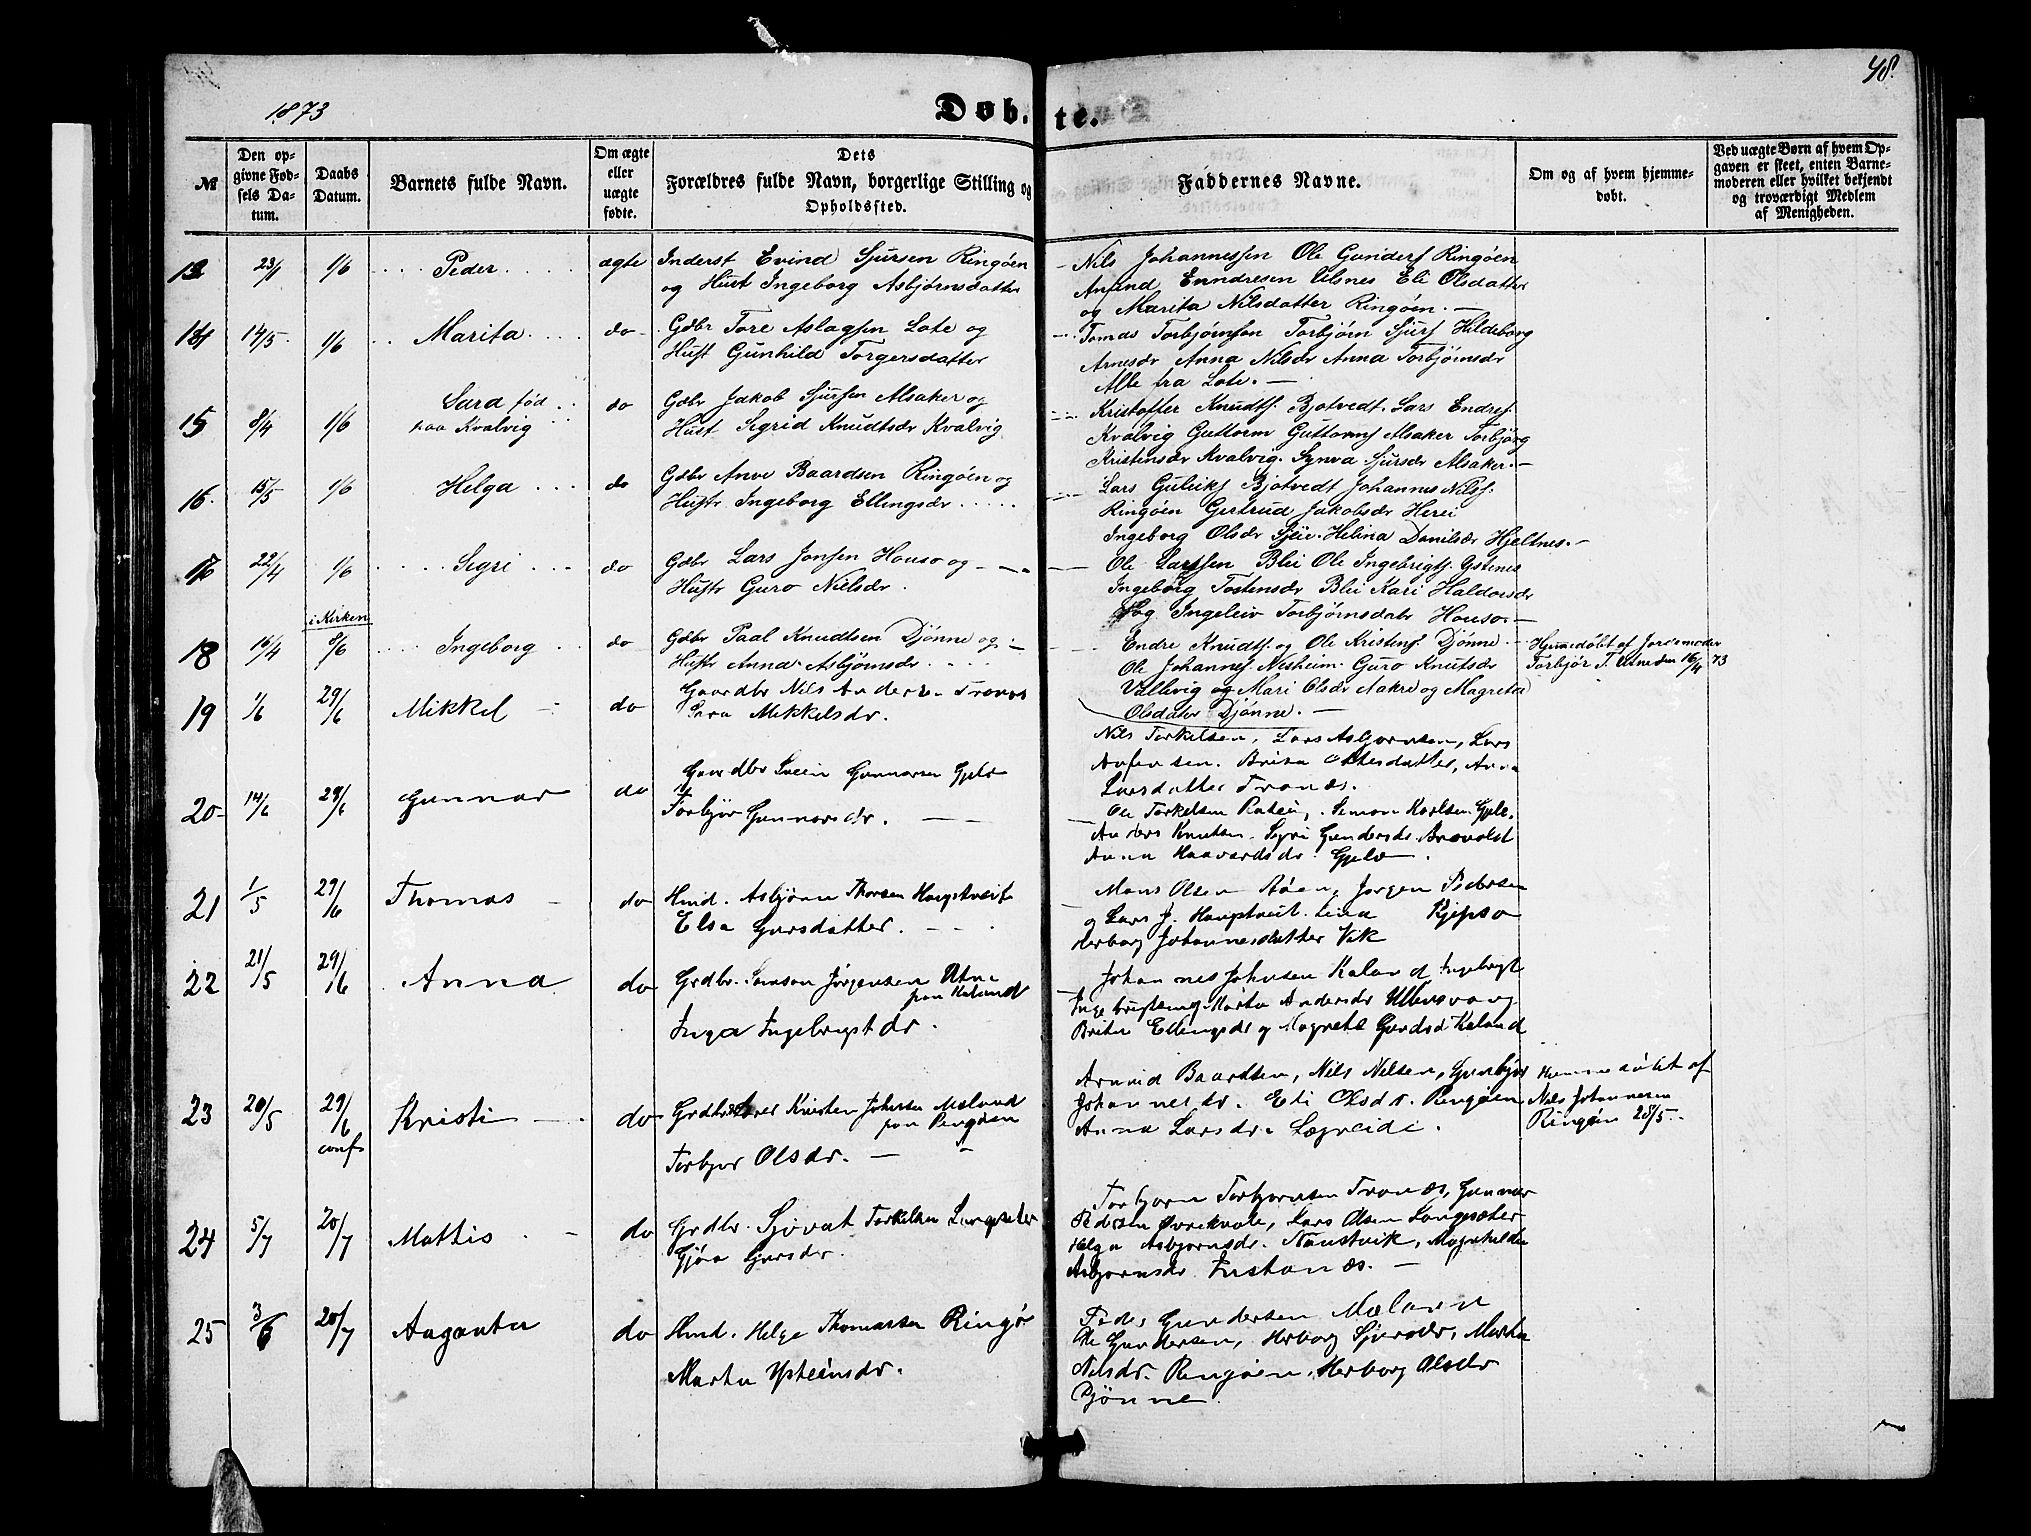 1873
Døb.
te.
48.
№
Den op-
givne Fød-
sels Da-
tum.
Daabs
Datum.
Barnets fulde Navn.
Om ægte
eller
uægte
fødte.
Dets
Forældres fulde Navn, borgerlige Stilling og
Opholdssted.
Faddernes Navne.
Om og af hvem hjemme-
døbt.
Ved uægte Børn af hvem Op-
gaven er skeet, enten Barne-
moderen eller hvilket bekjendt
og troværdigt Medlem
af Menigheden.
13 23/1 1/6 Peder ægte
Inderst Evind Sjursen Ringøen
og Hust Ingeborg Asbjørnsdatter
Nils Johannessen Ole Gunders Ringøen
Amund Enndresen Utsnes Eli Olsdatter
og Marita Nilsdatter Ringøen. —
14 14/5 1/6 Marita do
Gdbr Tore Aslagsen Lote og
Hust Gunhild Torgersdatter
Tomas Torbjørnsen Torbjørn Sjurs Hildeborg
Arnesdr Anna Nilsdr Anna Torbjørnsdr
Alle fra Lote. —
15 8/4 1/6 Sara fød
paa Kvalvig do
Gdbr Jakob Sjursen Alsaker og
Hust Sigrid Knudtsdr Kvalvig
Kristoffer Knudts. Bjotvedt. Lars Endres.
Kvalvig Guttorm Guttorms Alsaker Torbjørg
Kristensdr Kvalvig. Synva Sjursdr Alsaker. —
16. 15/5 1/6 Helga do
Gdbr Anve Baardsen Ringøen og
Hustr Ingeborg Ellingsdr
Lars Guleiks Bjotvedt Johannes Nils.
Ringøen Gertrud Jakobsdr Herei
Ingeborg Olsdr Helina Danilsdr Hjeltnes. —
22/4 1/6 Sigri do
Gdbr Lars Jonsen Houso og
Hustr Guro Nielsdr.
Ole Larssen Blei Ole Ingebrigts. Ystenes
Ingeborg Tostensdr Blei Kari Haldorsdr
og Ingeleiv Torbjørnsdatr Houso. —
i Kirken
18 16/4 8/6 Ingeborg do
Gdbr Paal Knudtsen Djønne og
Hustr Anna Asbjørnsdr
Endre Knudts. og Ole Kristens. Djønne
Ole Johannes. Nesheim Guro Knutsdr
Vallevig og Mari Olsdr Aakre og Magreta
Olsdater Djønne. —
Hjemmedøbt af Jordemoder
Torbjør T. Utne den 16/4 73
19 1/6 29/6 Mikkel do
Gaardbr Nils Anders. Tronæs
Sara Mikkelsdr.
Nils Torkelsen, Lars Asbjørnsen, Lars
Brita, Anna
Larsdatter Tronæs.
20 14/6 29/6 Gunnar do
Gaardbr Svein Gunnarsen Gjelv
Torbjør Gunnarsdr.
Ole Torkelsen, Simon Karlsen Gjelv,
Anders Knutsen. Sigri Gundersdr. Bravold
Anna Haavardsdr. Gjelv.
21 1/5 29/6 Thomas do
Hmd. Asbjørn Thorsen Haugstveit
Elsa Larsdatter.
Mons Olsen Aaen, Jørgen Pedersen
og Lars J. Haugstveit. Kjepso
Herborg Johannesdatter Vik
22 21/5 29/6 Anna do
Grdbr. Samson Jørgensen Utne
paa Kaland
Inga Ingebrigtdr.
Johannes Johnsen Kaland Ingebrigt
Marta Andersdr Ullensvang
Brita Ellingsdr og Magreta Kaland
23 20/5 29/6 conf. Kristi do
Kristen Johnsen Maland
paa Ringøen
Torbjør Olsdr.
Arnvid Baardsen, Nils Nilsen, Gunbjør
Johannesdr. Eli Olsdr. Ringøen
Anna Larsdr. Lægreidi.
Hjemmedøbt af
Nils Johannesen
Ringøen 28/5.
24 5/7 20/7 Mattis do
Grdbr. Sjovat Torkelsen Langesæter
Gjøa Sjursdr.
Torbjørn Torbjørnsen Tronæs, Gunnar
Pedersen Øvrekvale, Lars Olsen Langesæter
Helga Asbjørnsdr. Naustvik, Magnhilda
Asbjørnsdr Instanæs. —
25 3/6 20/7 Aagaata do
Hmd. Helge Thomassen Ringø
Marta Ysteinsdr.
Peder Gundersen Mæland
Ole Gundersen, Herborg Sjursdr, Marta
Nilsdr. Ringøen, Herborg Olsdr
Djønne.